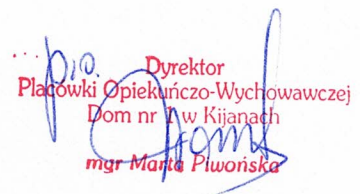 p.o. Dyrektor
Placówki Opiekuńczo-Wychowawczej
Dom nr 1 w Kijanach
mgr Marta Piwońska